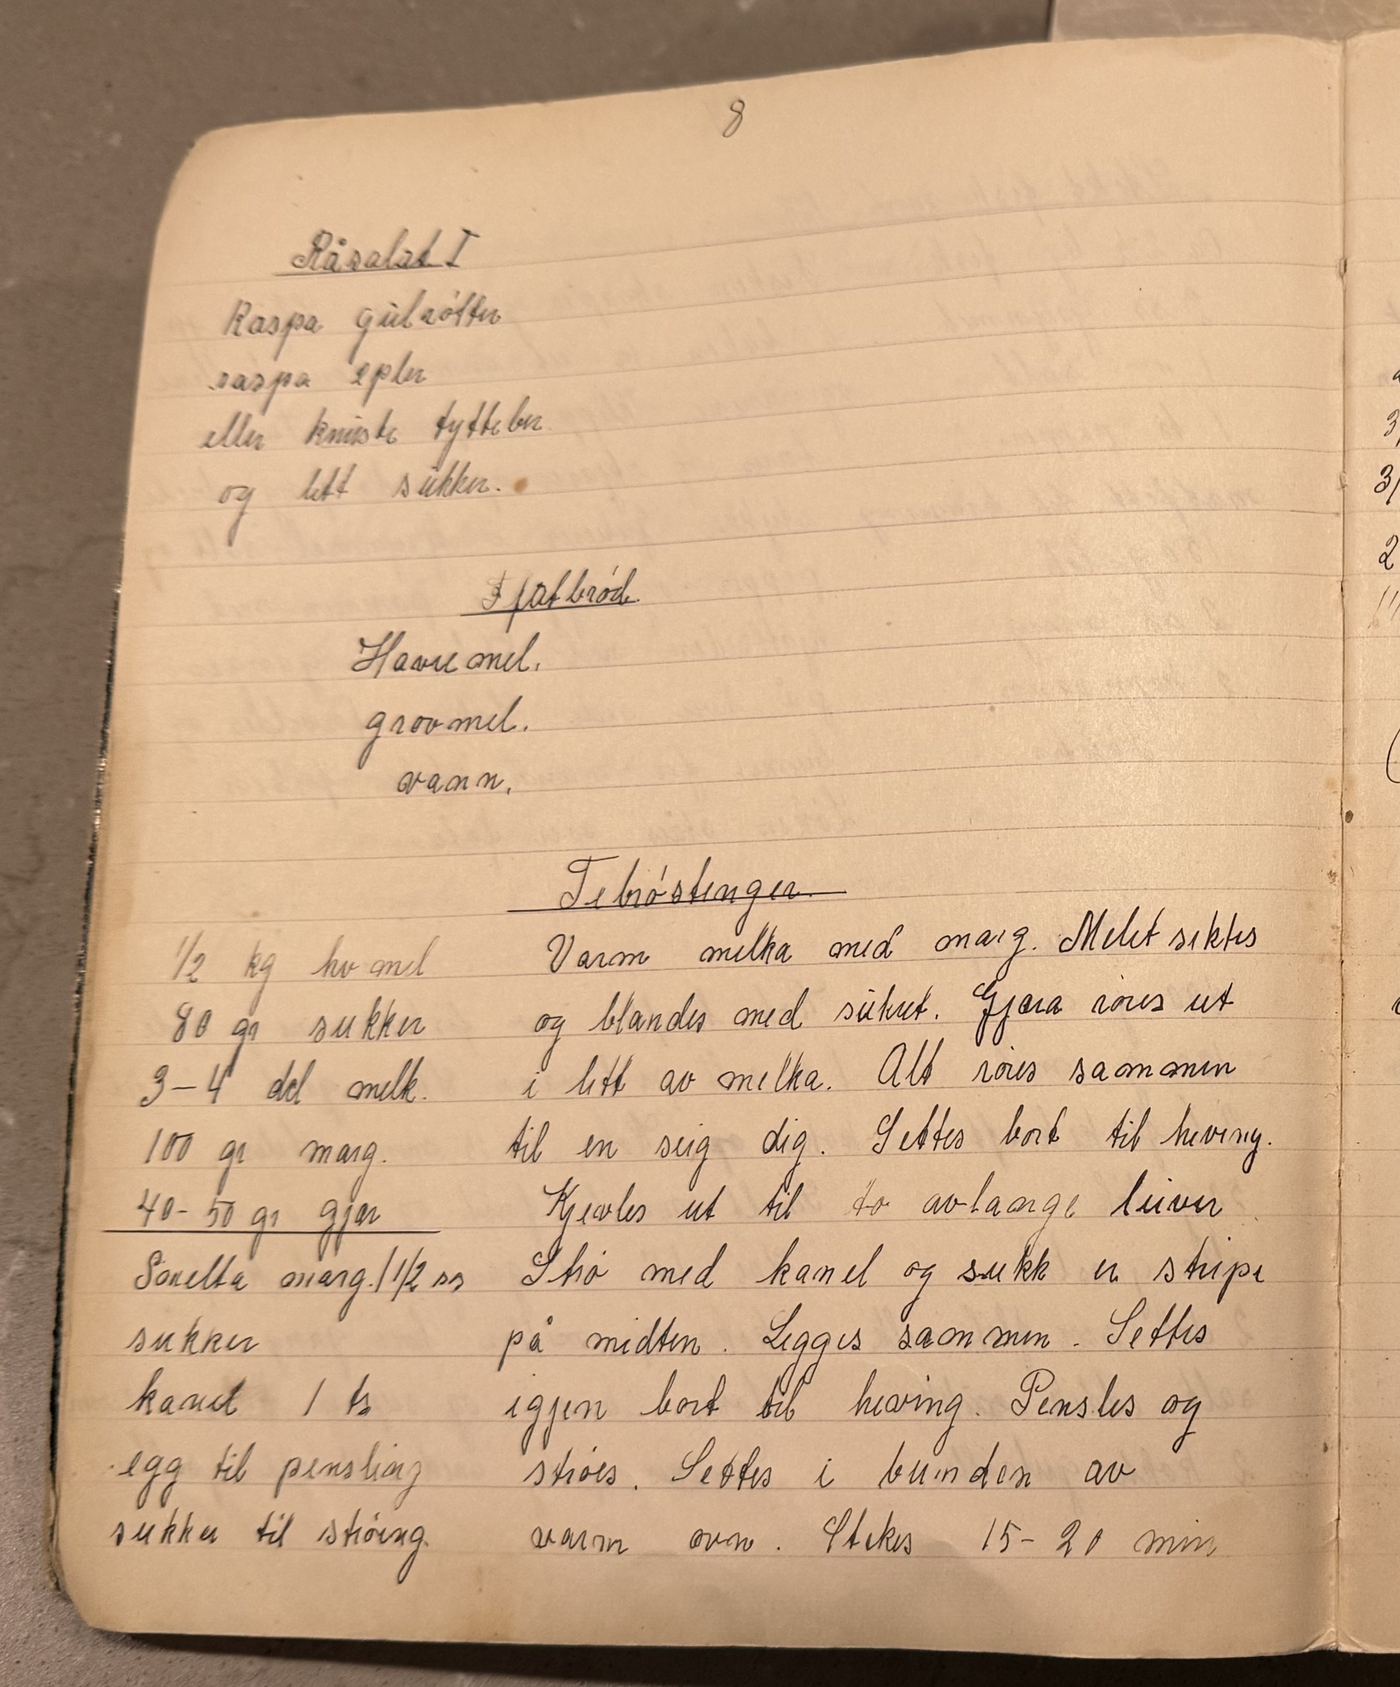 8
Råsalat I
Raspa gulrótter
raspa epler
eller knuste tytteber
og litt sukker.
Flatbród.
Havremel.
grovmel.
vann.
Tebróstenger.
1/2 kg hv mel
80 gr sukker
3-4 del melk.
100 gr marg.
40-50 gr gjær
Smelta marg. 1 1/2 ss
sukker
kanel 1 ts
egg til pensling
sukker til stróing.
Varm melka med marg. Melet siktes
og blandes med sukret. Gjæra róres ut
i litt av melka. Alt róres sammen
til en seig dig. Settes bort til heving.
Kjevles ut til to avlange leiver
Stró med kanel og sukk er stripe
på midten. Legges sammen. Settes
igjen bort til heving. Pensles og
stróes. Settes i bunnden av
varm ovn. Stekes 15-20 min
3/
2